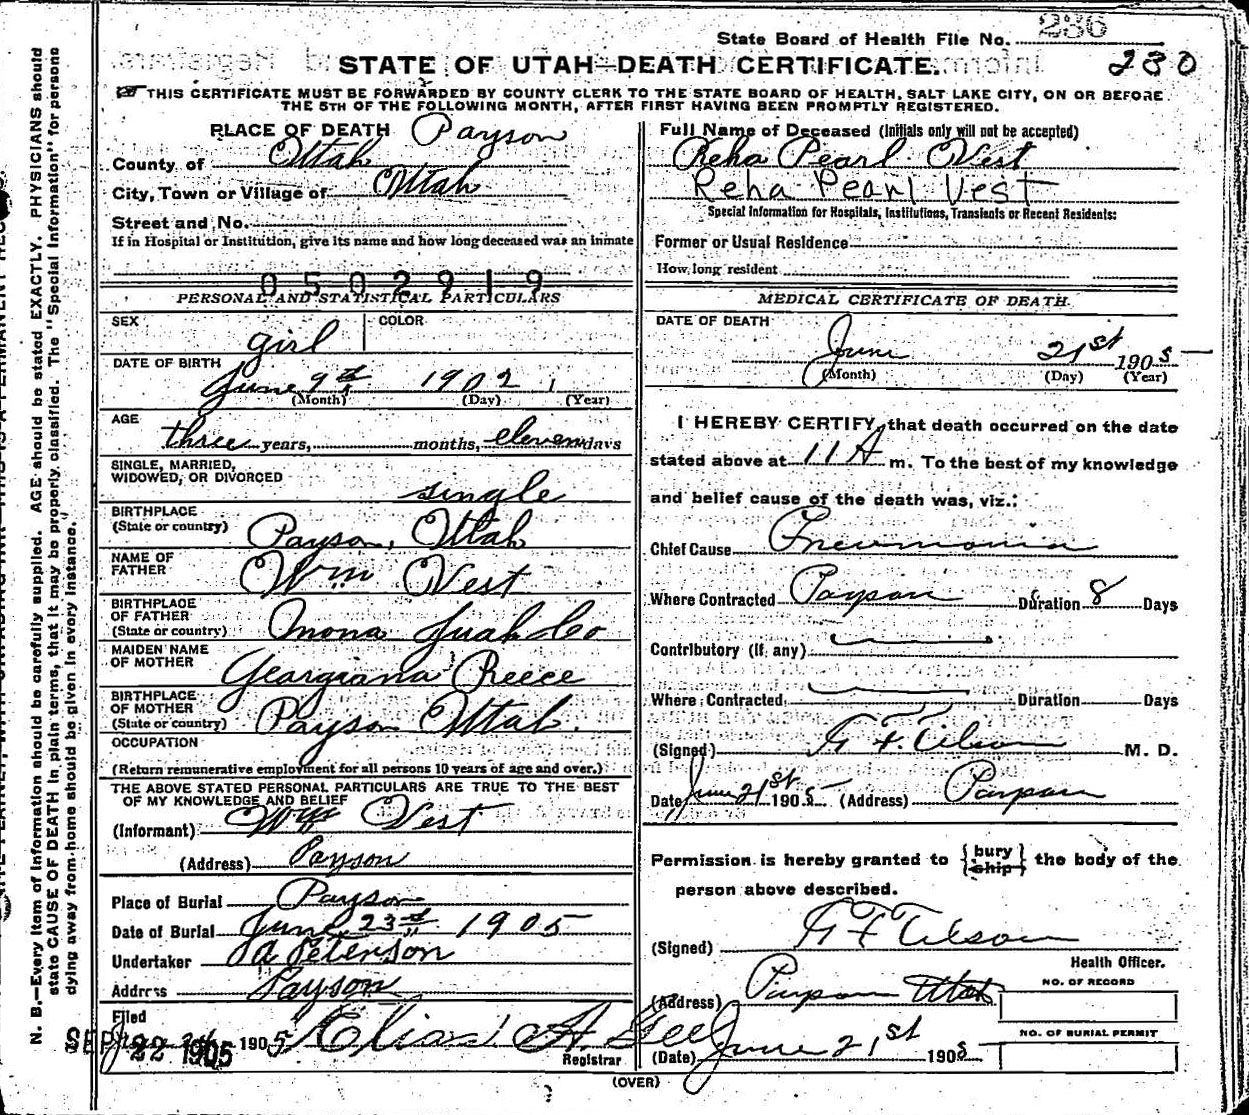 State Board of Health File No. 236
230
STATE OF UTAH—DEATH CERTIFICATE.
THIS CERTIFICATE MUST BE FORWARDED BY COUNTY CLERK TO THE STATE BOARD OF HEALTH, SALT LAKE CITY, ON OR BEFORE
THE 5TH OF THE FOLLOWING MONTH, AFTER FIRST HAVING BEEN PROMPTLY REGISTERED.
N. B.—Every item of information should be carefully supplied. AGE should be stated EXACTLY. PHYSICIANS should
state CAUSE OF DEATH in plain terms, that it may be properly classified. The "Special Information" for persons
dying away from home should be given in every instance.
PLACE OF DEATH Payson
County of Utah
City, Town or Village of Utah
Street and No.
If in Hospital or Institution, give its name and how long deceased was an inmate
0502919
PERSONAL AND STATISTICAL PARTICULARS
SEX girl COLOR
DATE OF BIRTH June 9th 1902
(Month) (Day) (Year)
AGE three years, months, eleven days
SINGLE, MARRIED,
WIDOWED, OR DIVORCED single
BIRTHPLACE
(State or country) Payson, Utah
NAME OF
FATHER Wm Vest
BIRTHPLACE
OF FATHER
(State or country) Mona Juab Co
MAIDEN NAME
OF MOTHER Georgiana Reece
BIRTHPLACE
OF MOTHER
(State or country) Payson Utah.
OCCUPATION
(Return remunerative employment for all persons 10 years of age and over.)
THE ABOVE STATED PERSONAL PARTICULARS ARE TRUE TO THE BEST
OF MY KNOWLEDGE AND BELIEF
(Informant) Wm Vest
(Address) Payson
Place of Burial Payson
Date of Burial June 23rd 1905
Undertaker Peterson
Address Payson
Filed
SEP 22 1905
1905 Elias A. Gee
Registrar
Full Name of Deceased (Initials only will not be accepted)
Reha Pearl Vest
Reha Pearl Vest
Special Information for Hospitals, Institutions, Transients or Recent Residents:
Former or Usual Residence
How long resident
MEDICAL CERTIFICATE OF DEATH.
DATE OF DEATH
June 21st 1905
(Month) (Day) (Year)
I HEREBY CERTIFY, that death occurred on the date
stated above at 11 A m. To the best of my knowledge
and belief cause of the death was, viz.:
Chief Cause Pneumonia
Where Contracted Payson Duration 8 Days
Contributory (If any)
Where Contracted Duration Days
(Signed) M. D.
Date June 21st 1905 (Address) Payson
Permission is hereby granted to {bury ship} the body of the
person above described.
(Signed)
Health Officer.
(Address) Payson Utah
NO. OF RECORD
NO. OF BURIAL PERMIT
(Date) June 21st 1905
(OVER)